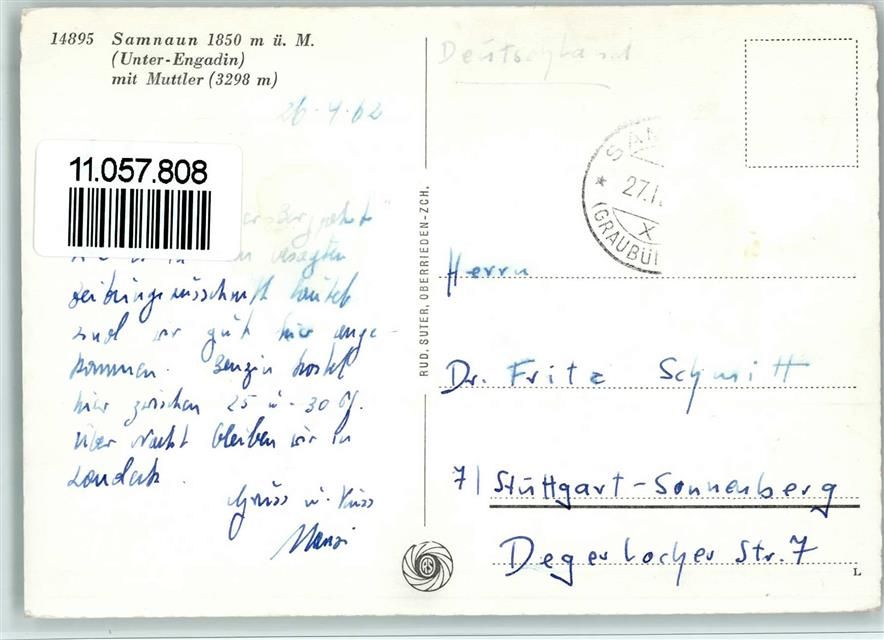 14895 Samnaun 1850 m ü. M.
(Unter-Engadin)
mit Muttler (3298 m)
26.4.62
11.057.808
lautet
sind wir gut hier ange-
kommen. Benzin kostet
hier zwischen 25 u. 30 Pf.
Über Nacht bleiben wir in
Landeck.
Gruss u. Kuss
RUD. SUTER, OBERRIEDEN-ZCH.
Deutschland
SAM
* 27.I
X
(GRAUBÜ
Herrn
Dr. Fritz Schmitt
7/ Stuttgart-Sonnenberg
Degerlocher Str. 7
L